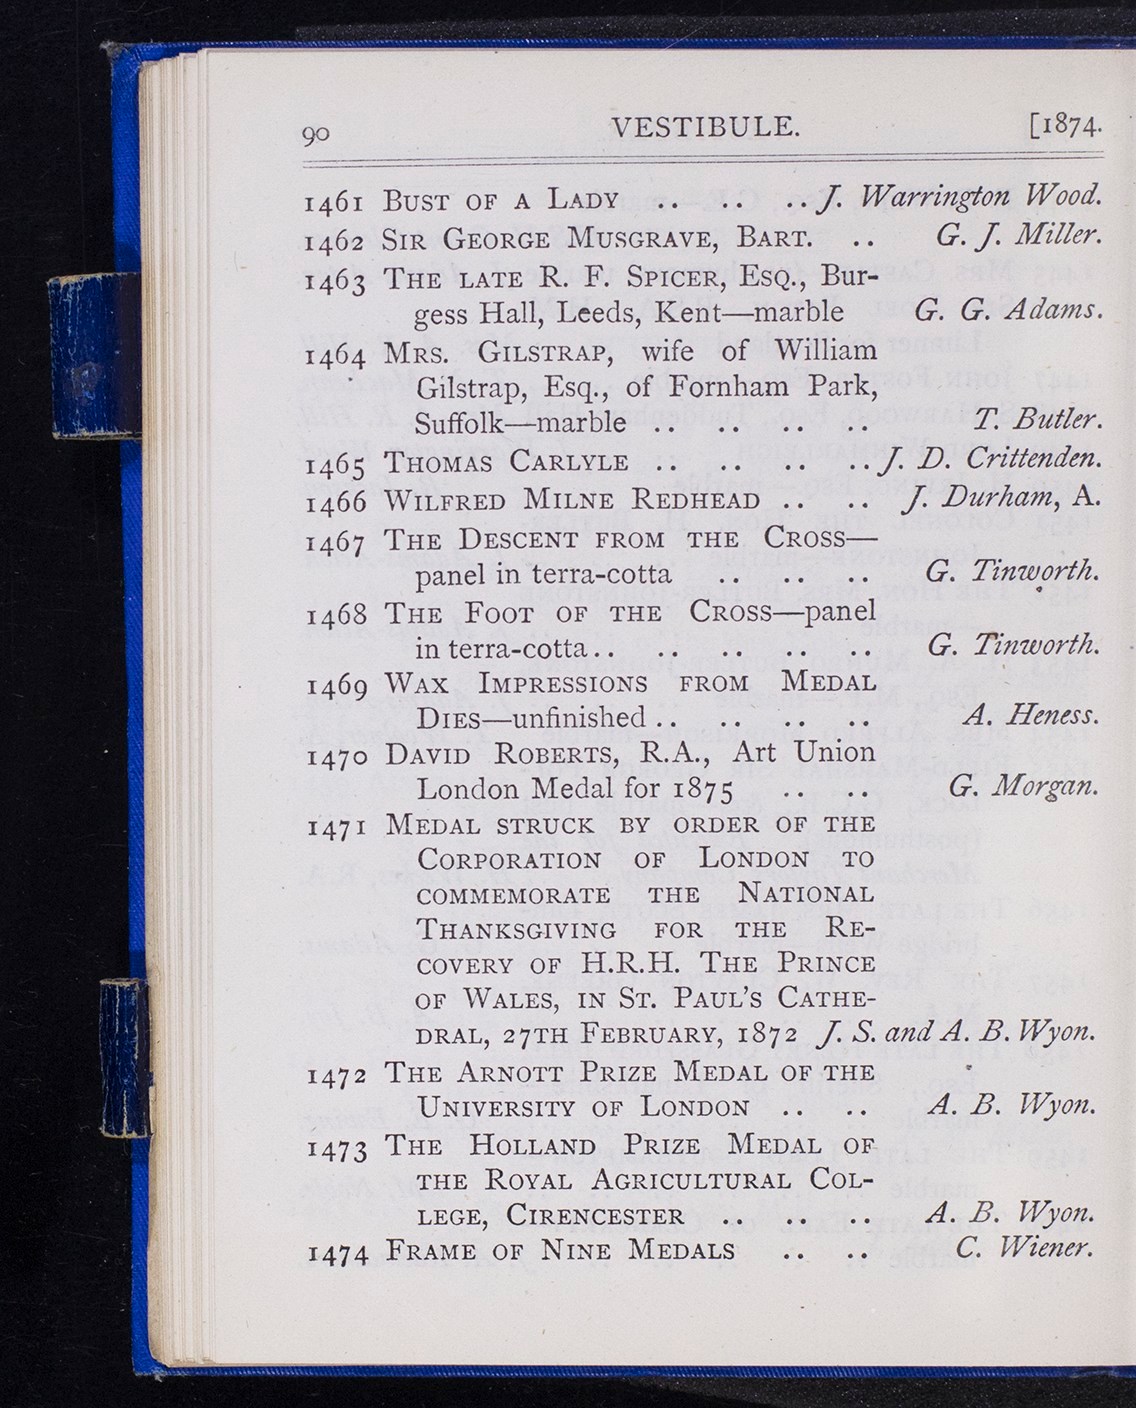 90 VESTIBULE. [1874.
1461 BUST OF A LADY .. .. .. J. Warrington Wood.
1462 SIR GEORGE MUSGRAVE, BART. .. G. J. Miller.
1463 THE LATE R. F. SPICER, ESQ., Bur-
gess Hall, Leeds, Kent—marble G. G. Adams.
1464 MRS. GILSTRAP, wife of William
Gilstrap, Esq., of Fornham Park,
Suffolk—marble .. .. .. .. T. Butler.
1465 THOMAS CARLYLE .. .. .. .. J. D. Crittenden.
1466 WILFRED MILNE REDHEAD .. .. J. Durham, A.
1467 THE DESCENT FROM THE CROSS—
panel in terra-cotta .. .. .. G. Tinworth.
1468 THE FOOT OF THE CROSS—panel
in terra-cotta .. .. .. .. .. G. Tinworth.
1469 WAX IMPRESSIONS FROM MEDAL
DIES—unfinished .. .. .. .. A. Heness.
1470 DAVID ROBERTS, R.A., Art Union
London Medal for 1875 .. .. G. Morgan.
1471 MEDAL STRUCK BY ORDER OF THE
CORPORATION OF LONDON TO
COMMEMORATE THE NATIONAL
THANKSGIVING FOR THE RE-
COVERY OF H.R.H. THE PRINCE
OF WALES, IN ST. PAUL'S CATHE-
DRAL, 27TH FEBRUARY, 1872 J. S. and A. B. Wyon.
1472 THE ARNOTT PRIZE MEDAL OF THE
UNIVERSITY OF LONDON .. .. A. B. Wyon.
1473 THE HOLLAND PRIZE MEDAL OF
THE ROYAL AGRICULTURAL COL-
LEGE, CIRENCESTER .. .. .. A. B. Wyon.
1474 FRAME OF NINE MEDALS .. .. C. Wiener.